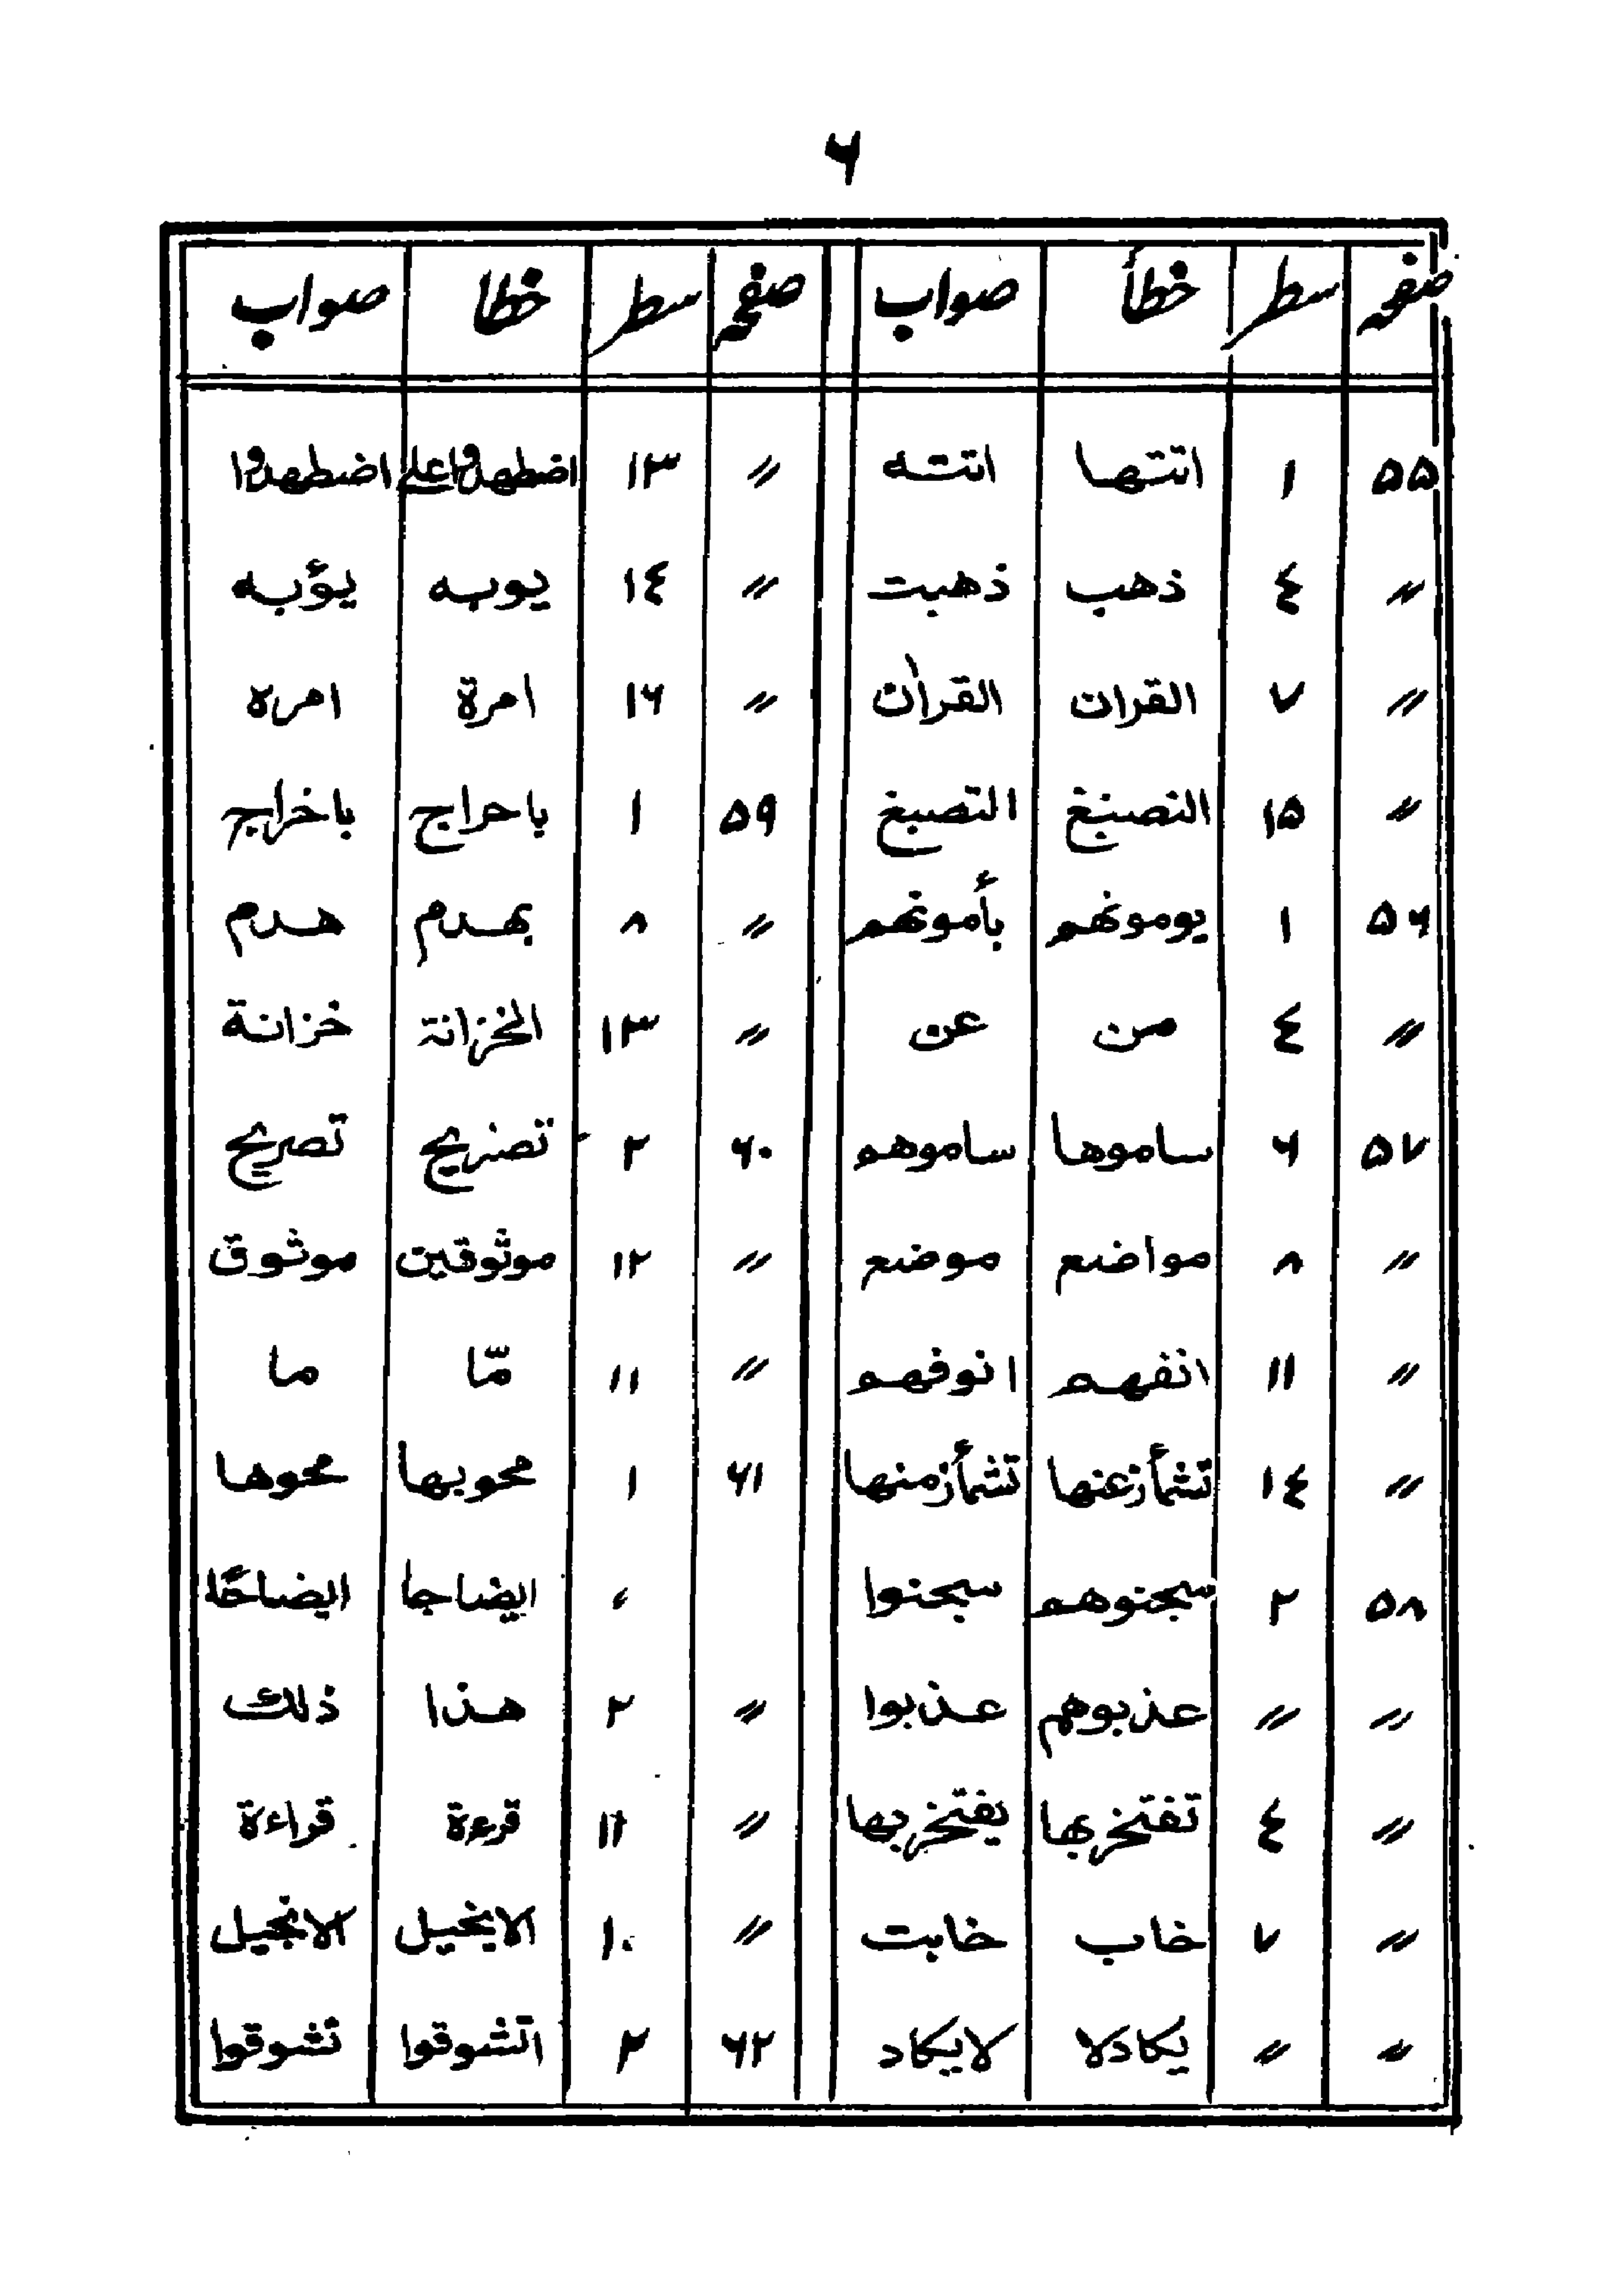 ۶
صفحه سطر خطأ صواب صفحه سطر خطا صواب
۵۵ ۱ اتتها اتته 〃 ۱۳ اضطهدوا علی اضطهدوا
〃 ٤ ذهب ذهبت 〃 ۱٤ يوبه يؤبه
〃 ۷ القران القرأن 〃 ۱۶ امرة امره
〃 ۱۵ النصنيغ التصبغ ۵۹ ۱ باحراج باخراج
۵۶ ۱ يومونهم بأمونهم 〃 ۸ بهدم هدم
〃 ٤ من عن 〃 ۱۳ الخزانة خزانة
۵۷ ۶ ساموها ساموهم ۶۰ ۲ تصنريح تصريح
〃 ۸ مواضع موضع 〃 ۱۲ موثوقين موثوق
〃 ۱۱ انفهم انوفهم 〃 ۱۱ مّا ما
〃 ۱٤ تشمأزعنها تشمأزمنها ۶۱ ۱ محويها محوها
۵۸ ۲ سجنوهم سجنوا 〃 ايضاجا ايضاحًا
〃 〃 عذبوهم عذبوا 〃 ۲ هذا ذلك
〃 ٤ تفتخربها يفتخربها 〃 ۱۱ قرءة قراءة
〃 ۷ خاب خابت 〃 ۱۰ الايخيل الانجيل
〃 〃 يكادلا لايكاد ۶۲ ۲ اتشوقوا تشوقوا